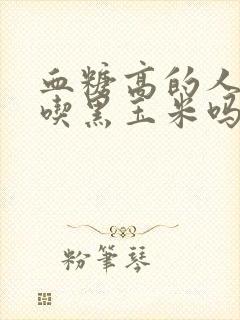 血糖高的人
喫黑玉米吗
粉筆琴